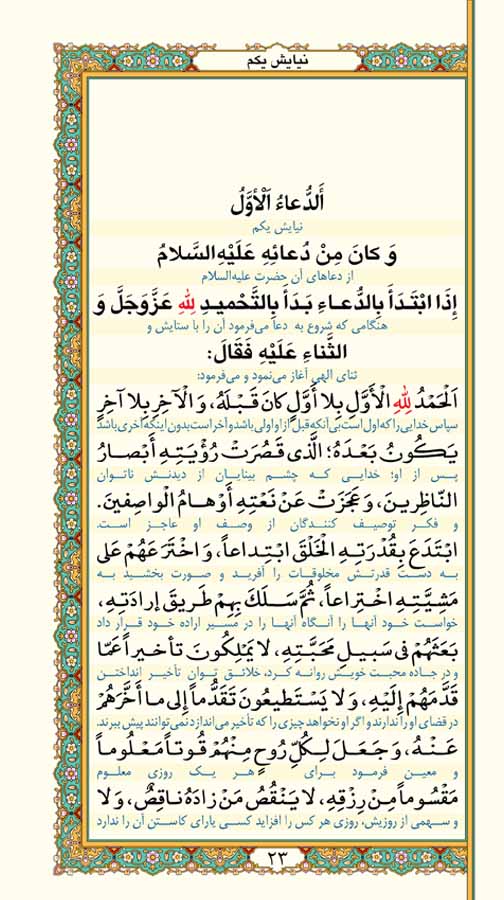 نیایش یکم
أَلدُّعاءُ الْأَوَّلُ
نیایش یکم
وَ كانَ مِنْ دُعائِهِ عَلَيْهِ‌السَّلامُ
از دعاهای آن حضرت علیه‌السلام
إِذَا ابْتَدَأَ بِالدُّعاءِ بَدَأَ بِالتَّحْميدِ لِلّٰهِ عَزَّوَجَلَّ وَ
هنگامی که شروع به دعا می‌فرمود آن را با ستایش و
الثَّناءِ عَلَيْهِ فَقَالَ:
ثنای الهی آغاز می‌نمود و می‌فرمود:
اَلْحَمْدُ لِلّٰهِ الْأَوَّلِ بِلا أَوَّلٍ كانَ قَبْلَهُ، وَ الْآخِرِ بِلا آخِرٍ
سپاس خدایی را که اول است بی‌آنکه قبل از او اولی باشد و آخر است بدون اینکه آخری باشد
يَكُونُ بَعْدَهُ؛ الَّذي قَصُرَتْ رُؤْيَتِهِ أَبْصارُ
پس از او؛ خدایی که چشم بینایان از دیدنش ناتوان
النّاظِرينَ، وَ عَجَزَتْ عَنْ نَعْتِهِ أَوْهامُ الْواصِفينَ.
و فکر توصیف کنندگان از وصف او عاجز است.
ابْتَدَعَ بِقُدْرَتِهِ الْخَلْقَ ابْتِداعاً، وَ اخْتَرَعَهُمْ عَلى
به دست قدرتش مخلوقات را آفرید و صورت بخشید به
مَشِيَّتِهِ اخْتِراعاً، ثُمَّ سَلَكَ بِهِمْ طَريقَ إِرادَتِهِ،
خواست خود آنها را آنگاه آنها را در مسیر اراده خود قرار داد
بَعَثَهُمْ في سَبيلِ مَحَبَّتِهِ، لا يَمْلِكُونَ تَأخيراً عَمّا
و در جاده محبت خویش روانه کرد، خلائق توان تأخیر انداختن
قَدَّمَهُمْ إِلَيْهِ، وَ لا يَسْتَطيعُونَ تَقَدُّماً إِلى ما أَخَّرَهُمْ
در قضای او را ندارند و اگر او نخواهد چیزی را که تأخیر می‌اندازد نمی‌توانند پیش ببرند.
عَنْهُ، وَ جَعَلَ لِكُلِّ رُوحٍ مِنْهُمْ قُوتاً مَعْلُوماً
و معین فرمود برای هر یک روزی معلوم
مَقْسُوماً مِنْ رِزْقِهِ، لا يَنْقُصُ مَنْ زادَهُ ناقِصٌ، وَ لا
و سهمی از روزیش، روزی هر کس را افزاید کسی یارای کاستن آن را ندارد
٢٣